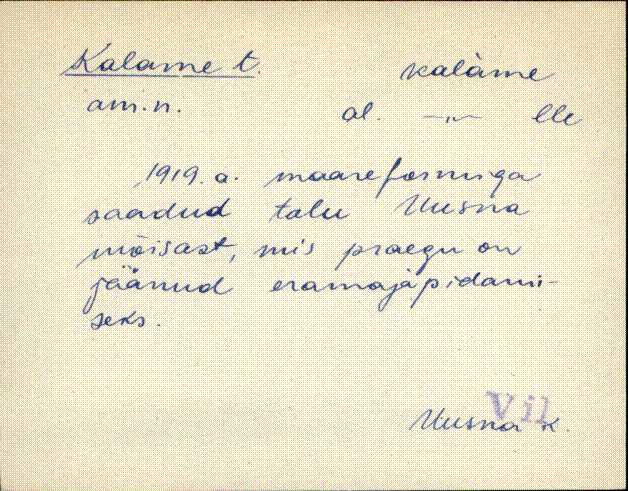 Kalame t. kalàme
am.n. al. -„- lle
1919. a. maareformiga
saadud talu Uusna
mõisast, mis praegu on
jäänud eramajapidami-
seks.
Vil
Uusna k.